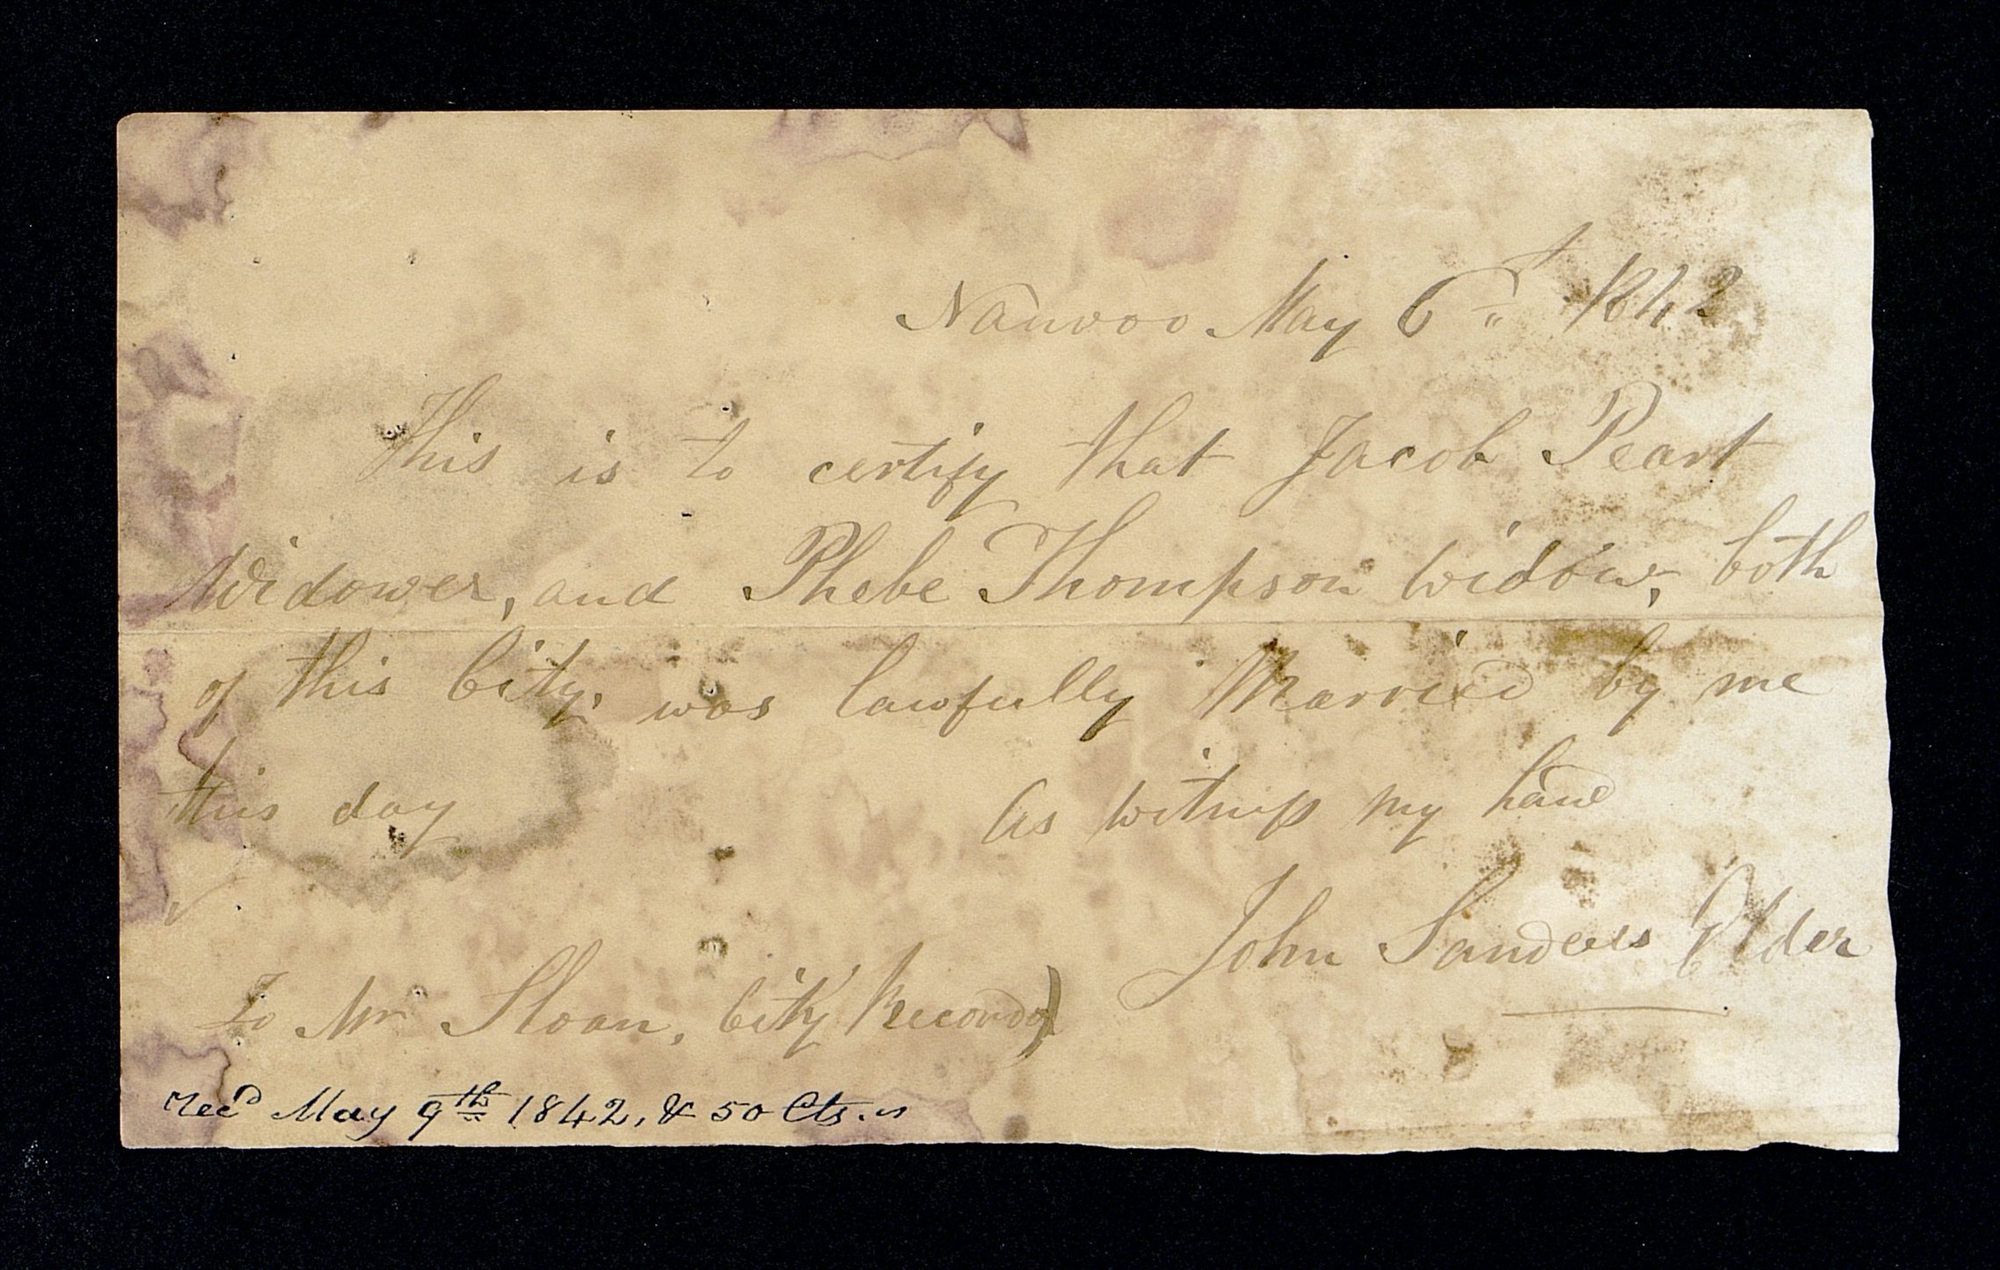 Nauvoo May 6th 1842
This is to certify that Jacob Peart
Widower, and Phebe Thompson Widow, both
of this City, was lawfully Married by me
this day As witness my hand
John Sanders Elder
To Mr Sloan, City Recorder)
recd May 9th 1842, & 50 Cts.